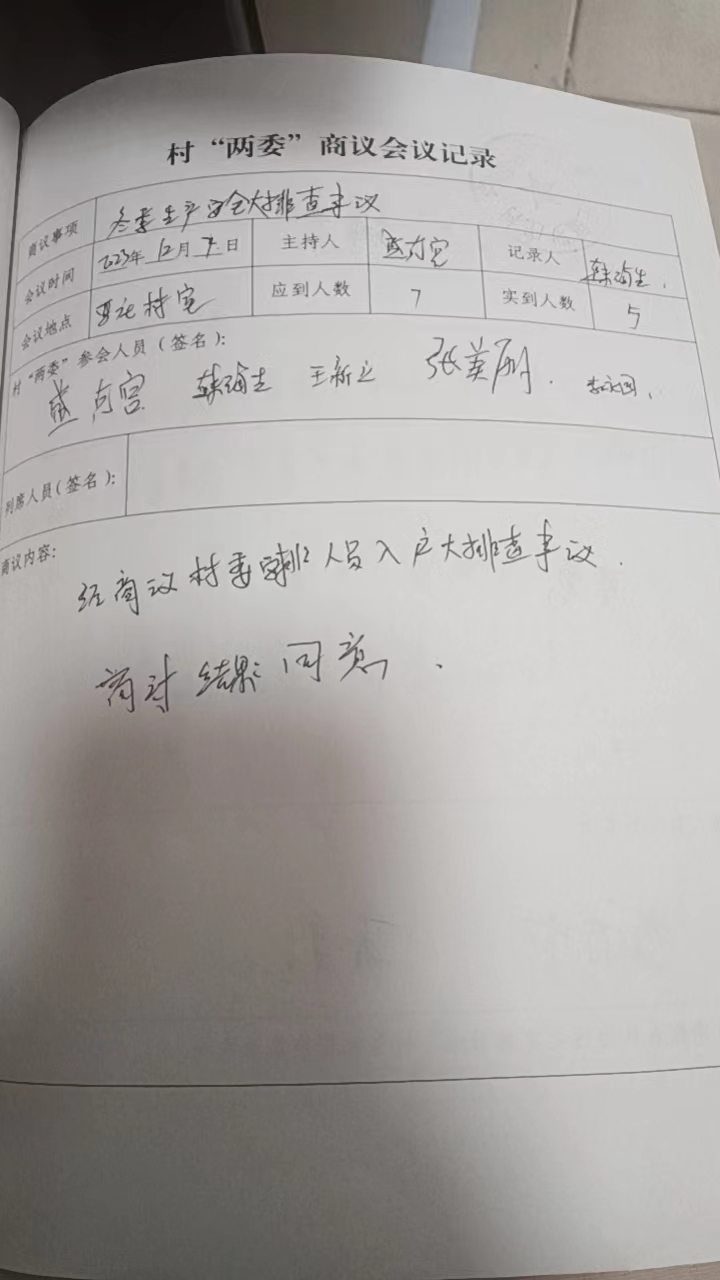 村“两委”商议会议记录
商议事项 冬季生产安全大排查事议
会议时间 2023年12月7日 主持人 记录人
会议地点 应到人数 7 实到人数 5
村“两委”参会人员(签名):
王新立 张美丽
列席人员(签名):
商议内容:
经商议村委安排人员入户大排查事议.
商讨结果:同意.